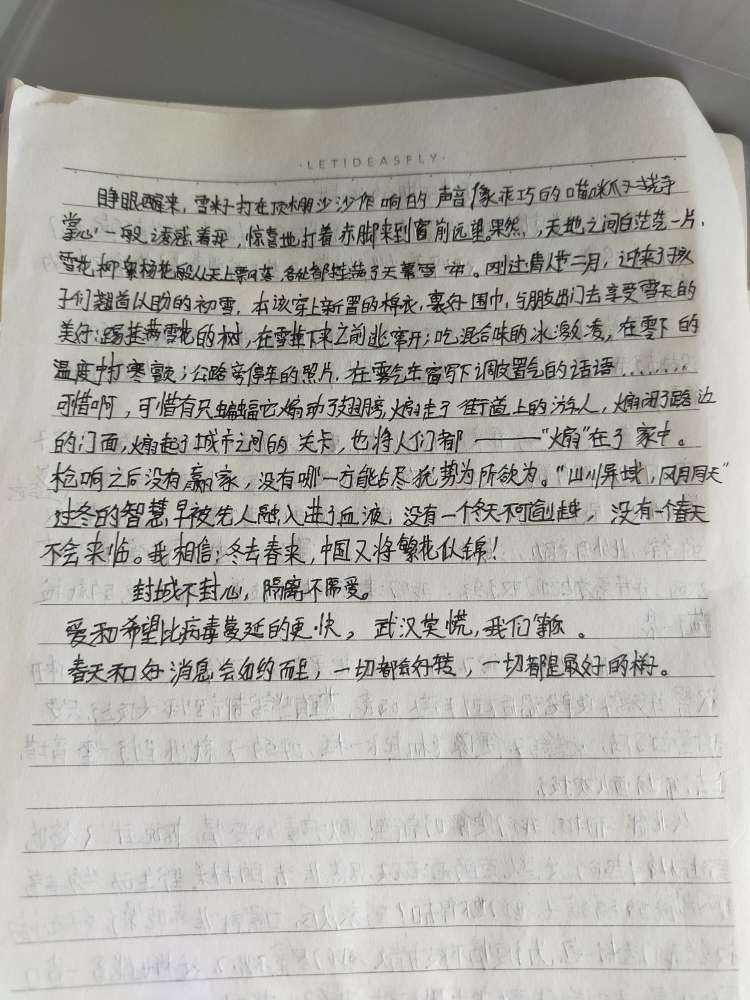 ·LETIDEASFLY·
睁眼醒来，雪籽打在顶棚沙沙作响的声音像乖巧的喵咪爪子挠手
掌心一般诱惑着我，惊喜地打着赤脚来到窗前远望。果然，天地之间白茫茫一片，
雪花柳絮杨花般从天上飘落，各处都挂满了天幕雪帘。刚过青梦二月，迎来了孩
子们翘首以盼的初雪，本该穿上新置的棉衣，裹好围巾，与朋友出门去享受雪天的
美好：踢挂满雪花的树，在雪堆下来之前逃窜开；吃混合味的冰激凌，在零下的
温度中打寒颤；公路旁停车的照片，在雾气车窗写下调皮置气的话语........
可惜啊，可惜有只蝙蝠它煽动了翅膀，煽走了街道上的游人，煽闭了路边
的门面，煽起了城市之间的关卡，也将人们都———“煽”在了家中。
枪响之后没有赢家，没有哪一方能占尽优势为所欲为。“山川异域，风月同天”
过冬的智慧早被先人融入进了血液，没有一个冬天不可逾越，没有一个春天
不会来临。我相信：冬去春来，中国又将繁花似锦！
封城不封心，隔离不隔爱。
爱和希望比病毒蔓延的更快，武汉莫慌，我们等你。
春天和好消息会如约而至，一切都会好转，一切都是最好的样子。